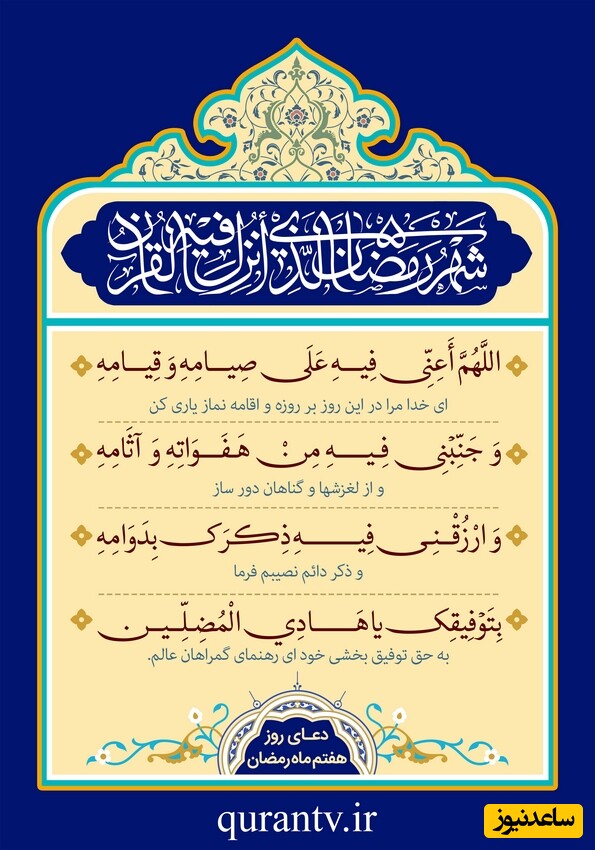 شَهْرُ رَمَضَانَ الَّذِي أُنْزِلَ فِيهِ الْقُرْآنُ
اللَّهُمَّ أَعِنِّی فِیهِ عَلَى صِیَامِهِ وَ قِیَامِهِ
ای خدا مرا در این روز بر روزه و اقامه نماز یاری کن
وَ جَنِّبْنِی فِیهِ مِنْ هَفَوَاتِهِ وَ آثَامِهِ
و از لغزشها و گناهان دور ساز
وَ ارْزُقْنِی فِیهِ ذِکرَکَ بِدَوَامِهِ
و ذکر دائم نصیبم فرما
بِتَوْفِیقِکَ یا هَادِيَ الْمُضِلِّینَ
به حق توفیق بخشی خود ای رهنمای گمراهان عالم.
دعای روز
هفتم ماه رمضان
qurantv.ir
ساعدنیوز